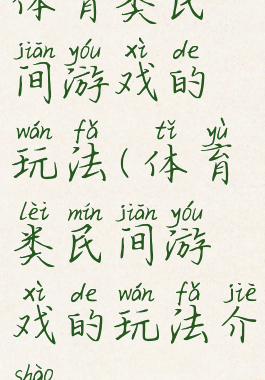 体育类民
jiān yóu xì de
间游戏的
wán fǎ tǐ yù
玩法(体育
lèi mín jiān yóu
类民间游
xì de wán fǎ jiè
戏的玩法介
shào